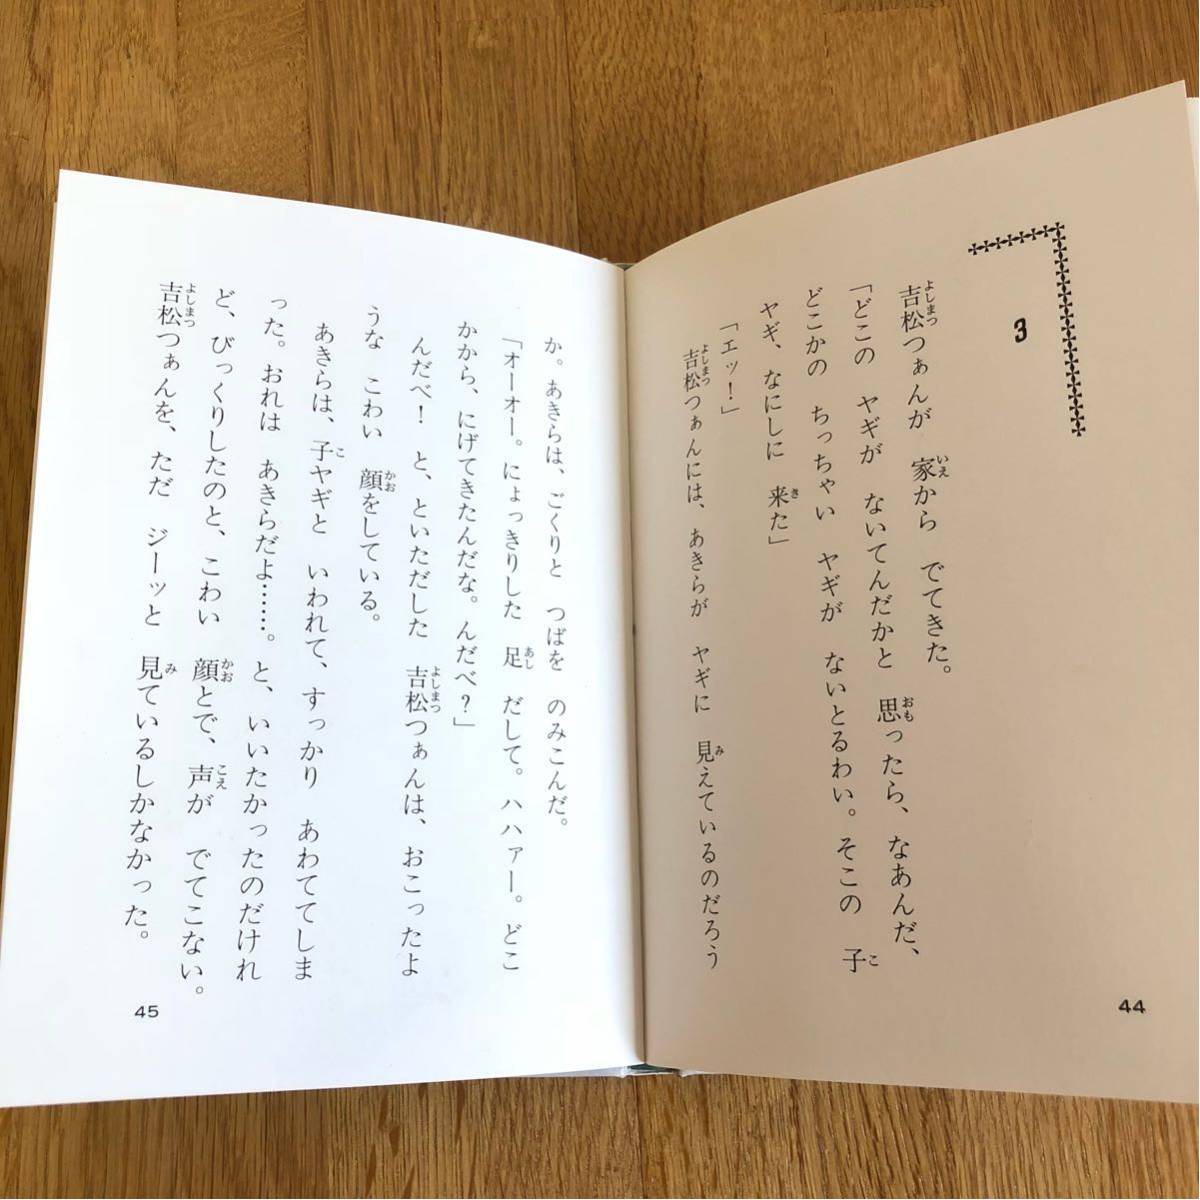 3
吉松つぁんが 家から でてきた。
「どこの ヤギが ないてんだかと 思ったら、なあんだ、
どこかの ちっちゃい ヤギが ないとるわい。そこの 子
ヤギ、なにしに 来た」
「エッ！」
吉松つぁんには、あきらが ヤギに 見えているのだろう
44
か。あきらは、ごくりと つばを のみこんだ。
「オーオー。にょっきりした 足 だして。ハハァー。どこ
かから、にげてきたんだな。んだべ？」
んだべ！ と、といただした 吉松つぁんは、おこったよ
うな こわい 顔をしている。
あきらは、子ヤギと いわれて、すっかり あわててしま
った。おれは あきらだよ……。と、いいたかったのだけれ
ど、びっくりしたのと、こわい 顔とで、声が でてこない。
吉松つぁんを、ただ ジーッと 見ているしかなかった。
45